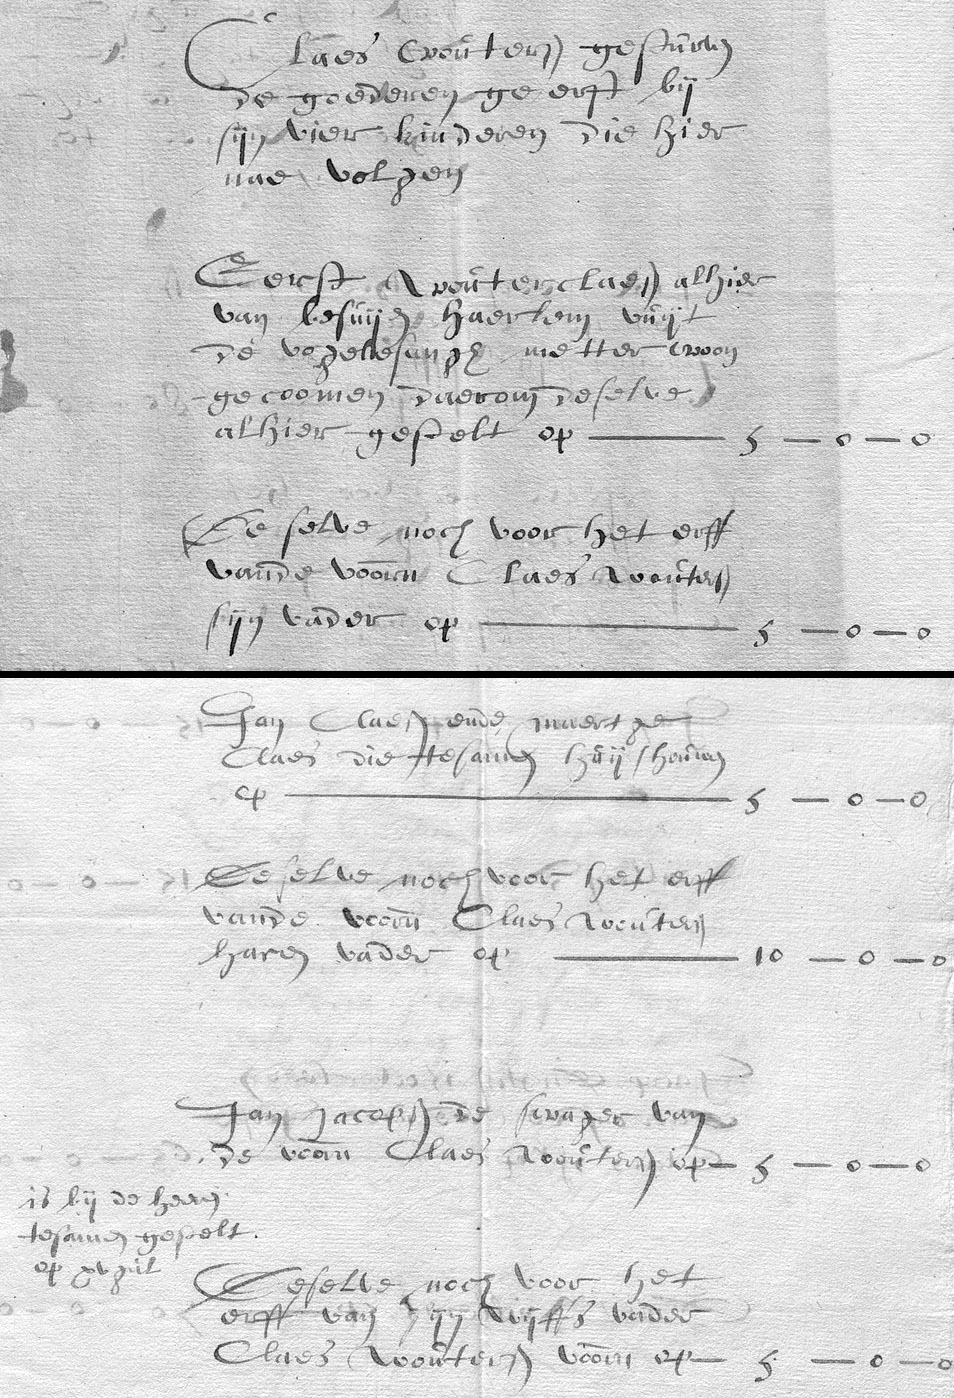 Claes Wouters gesturven
de goederen ge erft bij
sijn vier kinderen die hier
nae volgen
Eerst Wouter claes alhier
van besuijen haerlem vuijt
de vogelesangh metter woon
gecoomen daerom deselve
alhier gestelt op — 5 — 0 — 0
De selve noch voor het erff
vande voorn Claes Wouters
sijn vader op — 5 — 0 — 0
Jan Claes ende maertge
Claes die tesamen huijshouwen
op — 5 — 0 — 0
De selve noch voor het erff
vande voorn Claes Wouters
haren vader op — 10 — 0 — 0
Jan Jacops de swager van
de voorn Claes Wouters op — 5 — 0 — 0
is bij de heeren
tesamen gestelt
op gul
De selve noch voor het
erff van sijn wijffs vader
Claes Wouters voorn op — 5 — 0 — 0